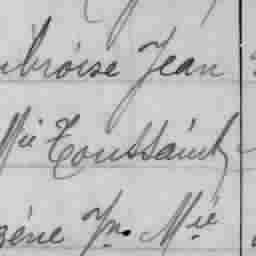 mbroise Jean
Mie Toussaint
gène Jn. Mie